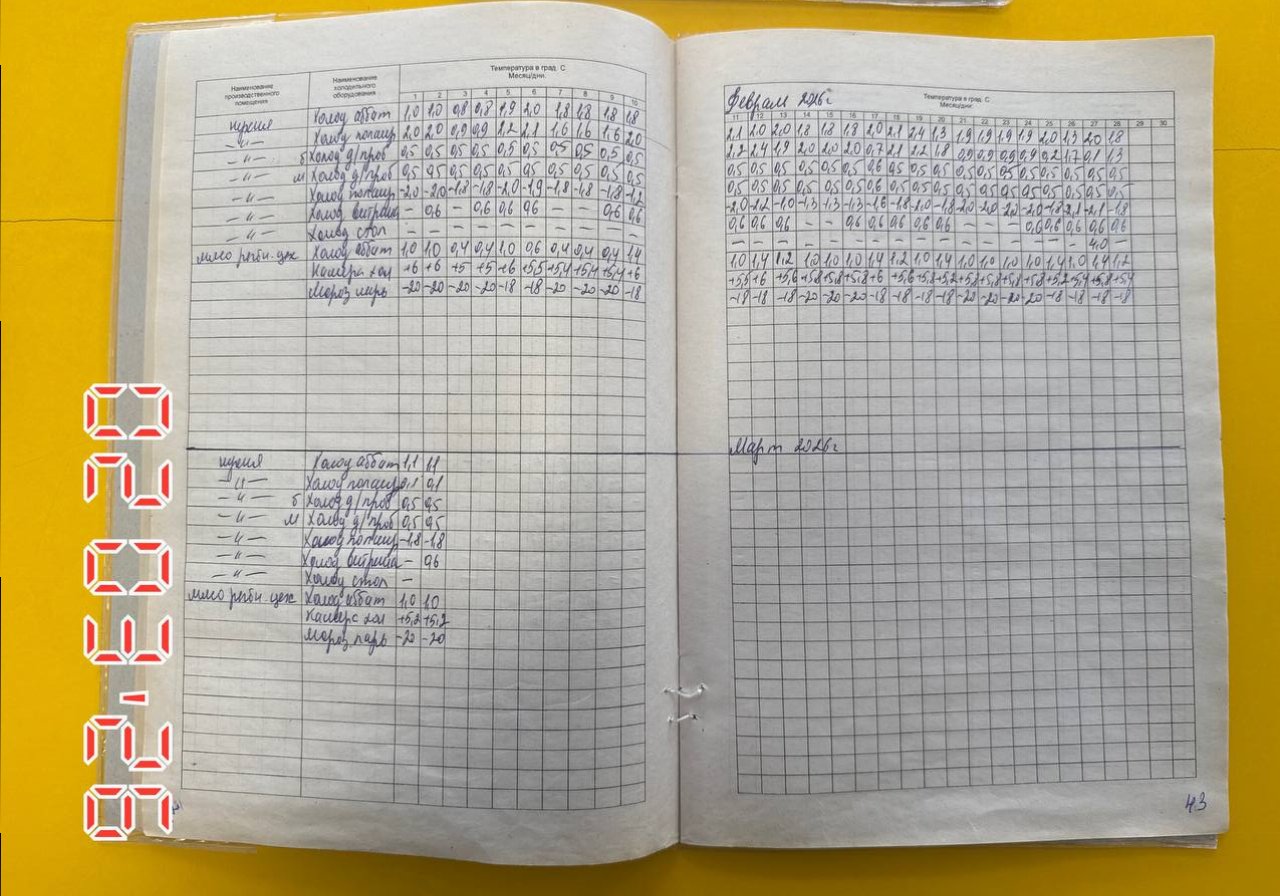 Наименование производственного помещения
Наименование холодильного оборудования
Температура в град. С
Месяц/дни.
1 2 3 4 5 6 7 8 9 10
кухня Холод аббат 1,0 1,0 0,8 0,8 1,9 2,0 1,8 1,8 1,8 1,8
-"- Холод 2,0 2,0 0,9 0,9 2,2 2,1 1,6 1,6 1,6 2,0
-"- б Холод д/проб 0,5 0,5 0,5 0,5 0,5 0,5 0,5 0,5 0,5 0,5
-"- м Холод д/проб 0,5 0,5 0,5 0,5 0,5 0,5 0,5 0,5 0,5 0,5
-"- Холод -2,0 -2,0 -1,8 -1,8 -2,0 -1,9 -1,8 -1,8 -1,8 -1,2
-"- Холод витрина – 0,6 – 0,6 0,6 0,6 – – 0,6 0,6
-"- Холод стол – – – – – – – – – –
мясо рыбн. цех Холод аббат 1,0 1,0 0,4 0,4 1,0 0,6 0,4 0,4 0,4 1,4
Камера хол +6 +6 +5 +5 +6 +5,5 +5,4 +5,4 +5,4 +6
Мороз ларь -20 -20 -20 -20 -18 -18 -20 -20 -20 -18
кухня Холод аббат 1,1 1,1
-"- Холод 0,1 0,1
-"- б Холод д/проб 0,5 0,5
-"- м Холод д/проб 0,5 0,5
-"- Холод -1,8 -1,8
-"- Холод витрина – 0,6
-"- Холод стол –
мясо рыбн. цех Холод аббат 1,0 1,0
Камера хол +5,2 +5,2
Мороз ларь -20 -20
Февраль 2026г
Температура в град. С
Месяц/дни.
11 12 13 14 15 16 17 18 19 20 21 22 23 24 25 26 27 28 29 30
2,1 2,0 2,0 1,8 1,8 1,8 2,0 2,1 2,4 1,3 1,9 1,9 1,9 1,9 2,0 1,3 2,0 1,8
2,2 2,4 1,9 2,0 2,0 2,0 0,7 2,1 2,2 1,8 0,9 0,9 0,9 0,9 0,2 1,7 0,1 1,3
0,5 0,5 0,5 0,5 0,5 0,5 0,6 0,5 0,5 0,5 0,5 0,5 0,5 0,5 0,5 0,5 0,5 0,5
0,5 0,5 0,5 0,5 0,5 0,5 0,6 0,5 0,5 0,5 0,5 0,5 0,5 0,5 0,5 0,5 0,5 0,5
-2,0 -1,2 -1,0 -1,3 -1,3 -1,3 -1,6 -1,8 -2,0 -1,8 -2,0 -2,0 -2,0 -2,0 -1,8 -2,1 -2,1 -1,8
0,6 0,6 0,6 – – 0,6 0,6 0,6 0,6 0,6 – – – 0,6 0,6 0,6 0,6 0,6
– – – – – – – – – – – – – – – – 4,0 –
1,0 1,4 1,2 1,0 1,0 1,0 1,4 1,2 1,0 1,4 1,0 1,0 1,0 1,0 1,4 1,0 1,4 1,2
+5,5 +6 +5,6 +5,8 +5,8 +5,8 +6 +5,6 +5,8 +5,2 +5,8 +5,8 +5,8 +5,8 +5,2 +5,4 +5,8 +5,4
-18 -18 -18 -20 -20 -20 -18 -18 -18 -18 -20 -20 -20 -20 -18 -18 -18 -18
Март 2026г
43
02.03.'26